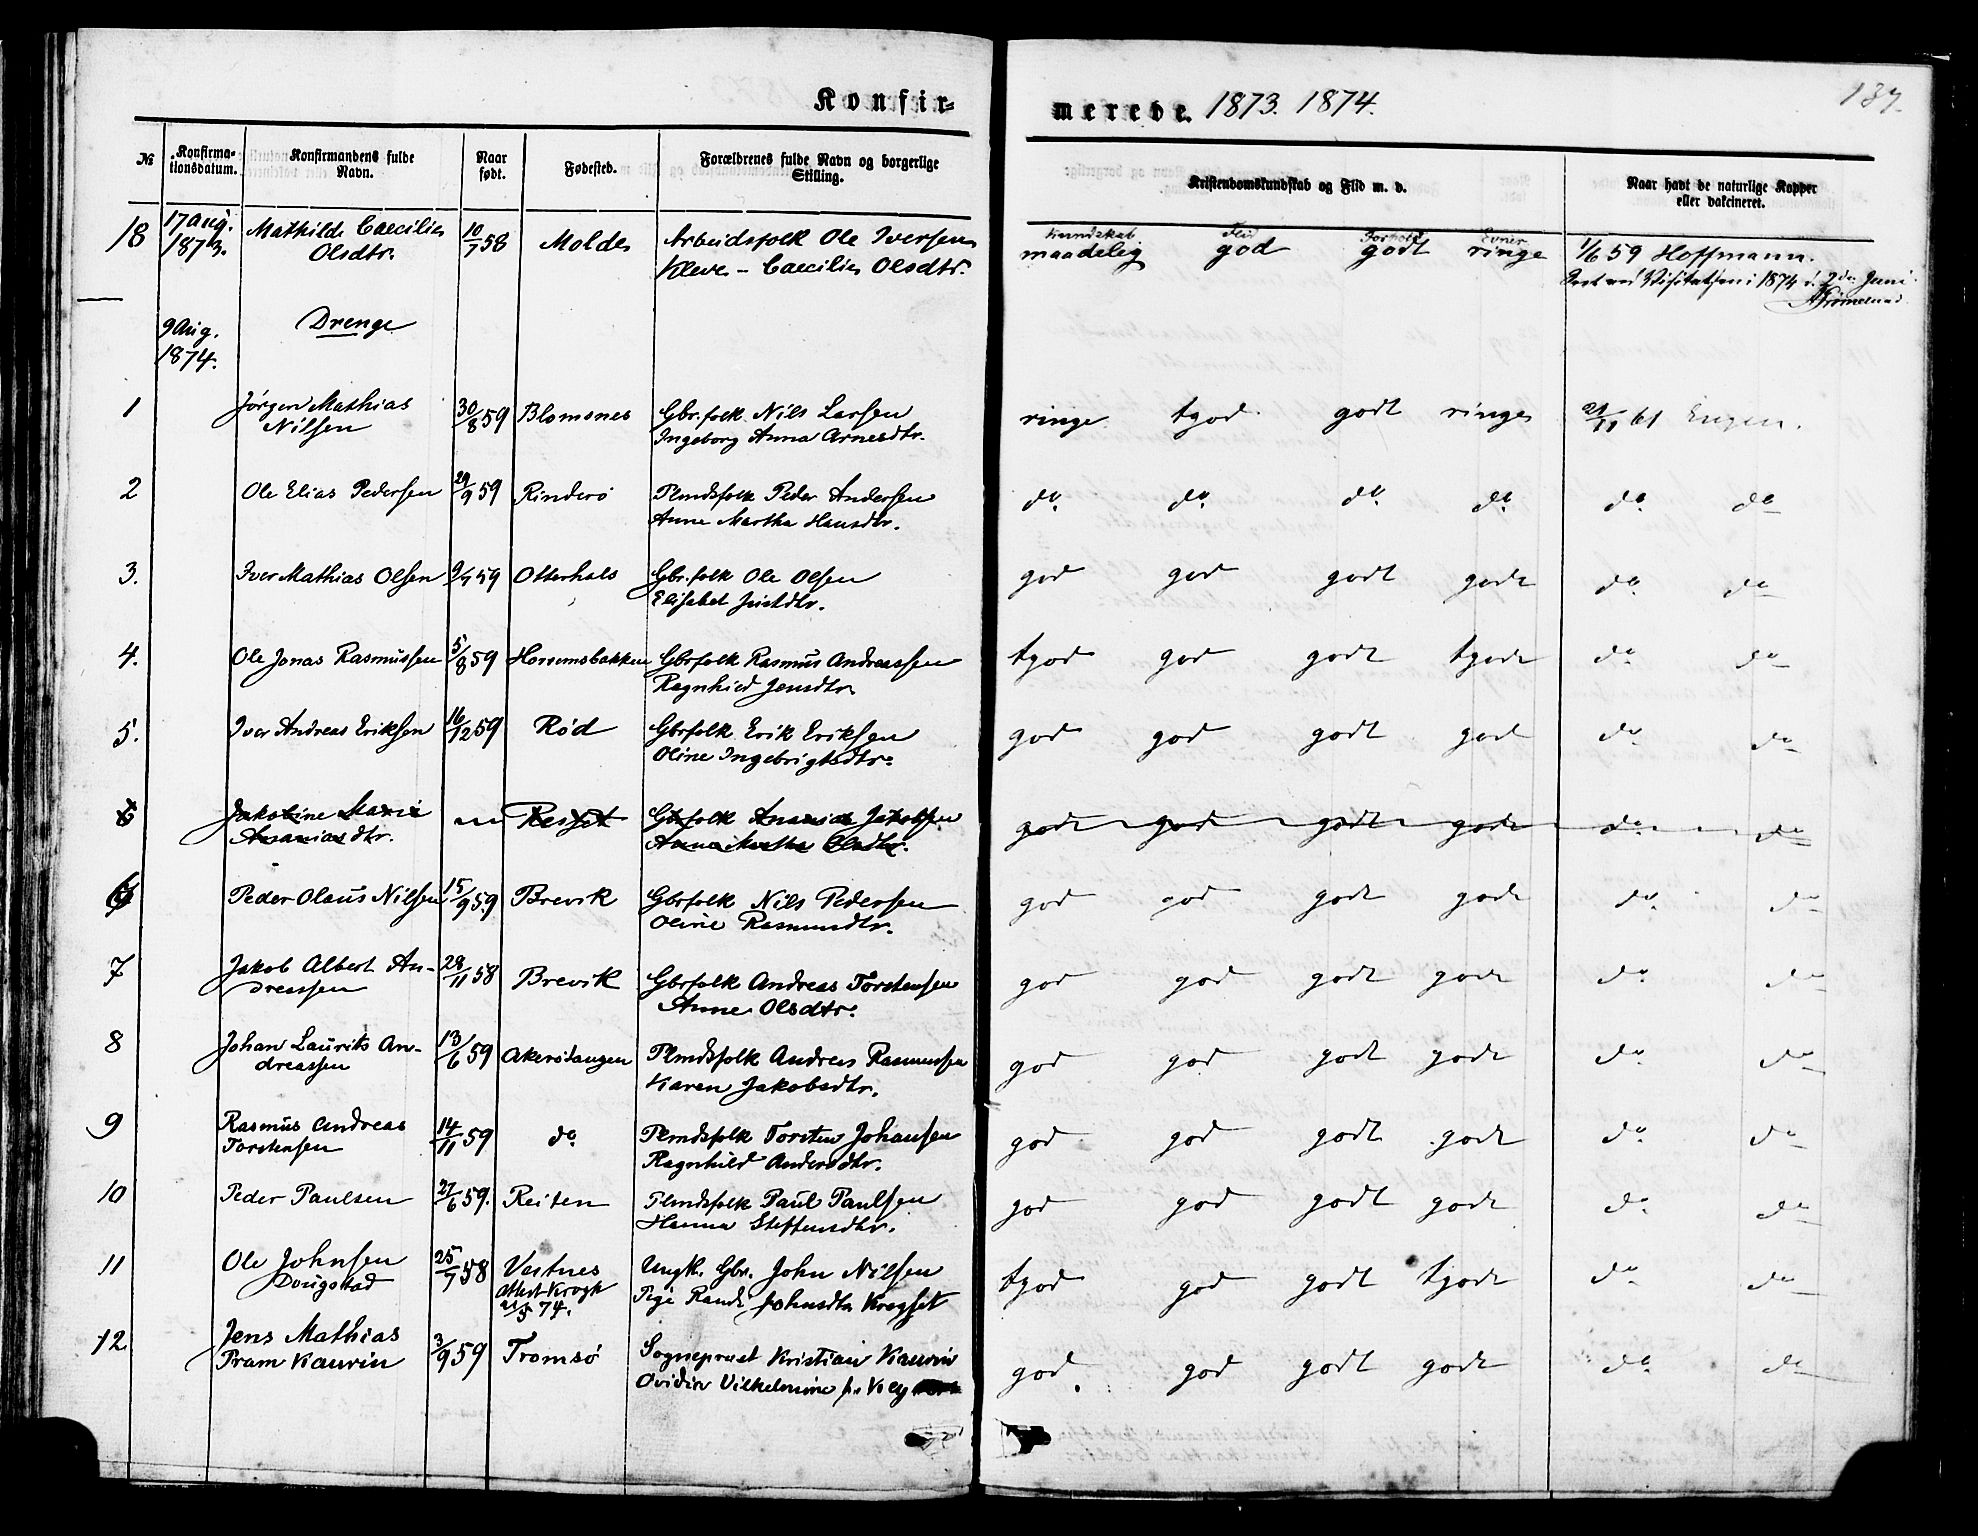 Konfir-
merede. 1873. 1874.
137.
№
Konfirma-
tionsdatum.
Konfirmandens fulde
Navn.
Naar
født.
Fødested.
Forældrenes fulde Navn og borgerlige
Stilling.
Kristendomskundskab og Flid m. v.
Naar havt de naturlige Kopper
eller vakcineret.
Kundskab Flid Forhold Evner
18 17 Aug. Mathilde Caecilie 10/7 58 Molde Arbeidsfolk Ole Iversen maadelig god godt ringe 1/6 59 Hoffmann.
1873. Olsdtr. Kleve - Caecilie Olsdtr.
Seet ved Visitatsen i 1874 d. 2den Juni
9 Aug. Drenge
1874.
1 Jørgen Mathias 30/8 59 Blomsnes Gbr.folk Nils Larsen ringe tgod godt ringe 21/11 61 Engen.
Nilsen Ingeborg Anna Arnesdtr.
2 Ole Elias Pedersen 29/9 59 Rinderø Plmdsfolk Peder Andersen do. do. do. do. do. do
Anne Martha Hansdtr.
3. Iver Mathias Olsen 9/7 59 Otterhals Gbr.folk Ole Olsen god god godt gode do. do
Elisabet Juetdtr.
4. Ole Jonas Rasmussen 5/8 59 Horsemsbakken Gbrfolk Rasmus Andreassen tgod god godt tgode do do
Ragnhild Jensdtr.
5. Iver Andreas Eriksen 16/12 59 Rød Gbrfolk Erik Eriksen god god godt gode do do
Oline Ingebrigtsdtr.
6 Jakobine Marie Resset Gbrfolk Ananias Jakobsen god god godt gode do. do
Ananiasdtr. Anne Martha Olsdtr.
6 Peder Olaus Nilsen 15/9 59. Brevik Gbrfolk Nils Pedersen god god godt gode do. do
Oline Rasmusdtr.
7 Jakob Albert An- 28/11 58 Brevik Gbrfolk Andreas Torstensen god god godt gode do. do
dreassen Anne Olsdtr.
8 Johan Laurits An- 13/6 59 Akerøtangen Plmdsfolk Andreas Rasmussen god god godt gode do. do
dreassen Karen Jakobsdtr.
9 Rasmus Andreas 14/11 59 do. Plmdsfolk Torsten Johansen god god godt gode do. do
Torstensen Ragnhild Andersdtr.
10 Peder Paulsen 27/6 59. Reiten Plmdsfolk Paul Paulsen god god godt gode do. do
Hanna Steffensdtr.
11 Ole Johnsen 25/7 58 Vestnes Ungk. Gbr. John Nilsen tgod god godt tgode do. do
Dougstad Attest Krogh Pige Randi Johnsdtr Kragset
74.
12 Jens Mathias 3/9 59 Tromsø Sogneprest Kristian Kaurin god. god godt gode do. do
Pram Kaurin Ovidia Vilhelmine f.